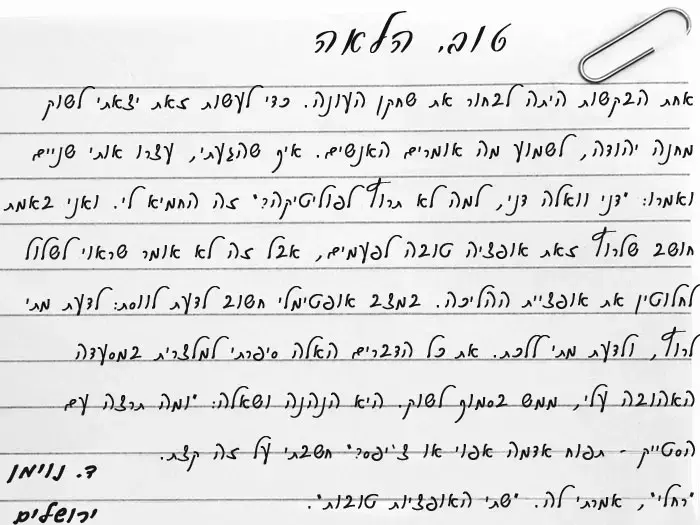 טוב. הלאה
אחת הבקשות היתה לבחור את שחקן העונה. כדי לעשות זאת יצאתי לשוק
מחנה יהודה, לשמוע מה אומרים האנשים. איך שהגעתי, עצרו אותי שניים
ואמרו: "דני וואלה דני, למה לא תרוץ לפוליטיקה?" זה החמיא לי. ואני באמת
חושב שלרוץ זאת אופציה טובה לפעמים, אבל זה לא אומר שראוי לשלול
לחלוטין את אופציית ההליכה. במצב אופטימלי חשוב לדעת לווסת: לדעת מתי
לרוץ, ולדעת מתי ללכת. את כל הדברים האלה סיפרתי למלצרית במסעדה
האהובה עלי, ממש בסמוך לשוק. היא הנהנה ושאלה: "ומה תרצה עם
הסטייק - תפוח אדמה אפוי או צ'יפס?" חשבתי על זה קצת.
"רחלי", אמרתי לה. "שתי האופציות טובות".
ד. נוימן
ירושלים